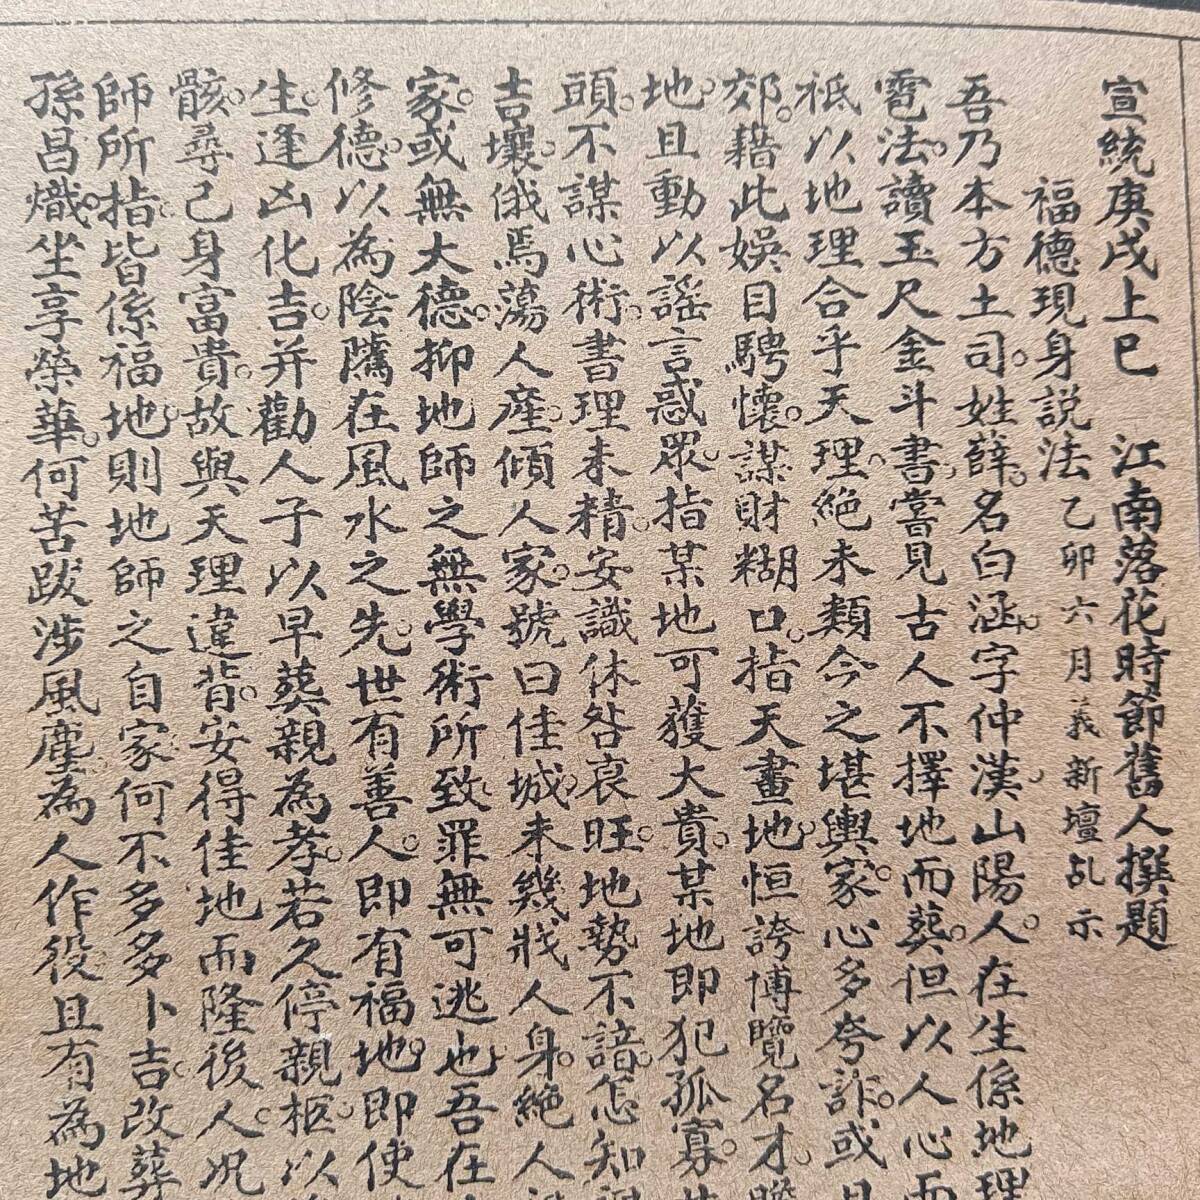 宣統庚戌上巳　江南落花時節舊人撰題
福德現身説法 乙卯六月義新壇乩示
吾乃本方土司。姓薛。名白涵。字仲漢。山陽人。在生係地理
雹法。讀玉尺金斗書。嘗見古人不擇地而葬。但以人心而
祗以地理合乎天理。絶未類今之堪輿家。心多夸詐。或
郊。藉此娛目騁懷。謀財糊口。指天畫地。恒誇博覽名才。
地。且動以謠言惑眾。指某地可獲大貴。某地即犯孤寡。
頭。不謀心術。書理未精。安識休咎衰旺。地勢不諳。怎知
吉壤。俄焉蕩人產。傾人家。號曰佳城。未幾戕人身。絶人
家。或無大德。抑地師之無學術所致。罪無可逃也。吾在
修德。以為陰騭在風水之先。世有善人。即有福地。即使
生。逢凶化吉。并勸人子以早葬親為孝。若久停親柩。以
骸。尋己身富貴。故與天理違背。安得佳地而隆後人。况
師所指。皆係福地。則地師之自家。何不多多卜吉。改葬
孫昌熾。坐享榮華。何苦跋涉風塵。為人作役。且有為地